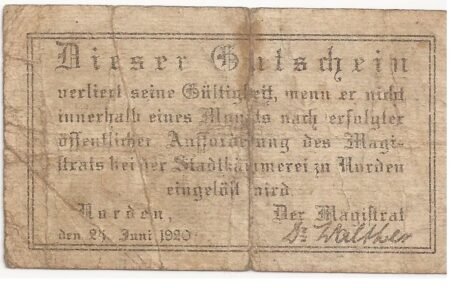 Dieser Gutschein
verliert seine Gültigkeit, wenn er nicht
innerhalb eines Monats nach erfolgter
öffentlicher Aufforderung des Magi-
strats bei der Stadtkämmerei zu Norden
eingelöst wird.
Norden, Der Magistrat
den 25. Juni 1920 Dr Walther